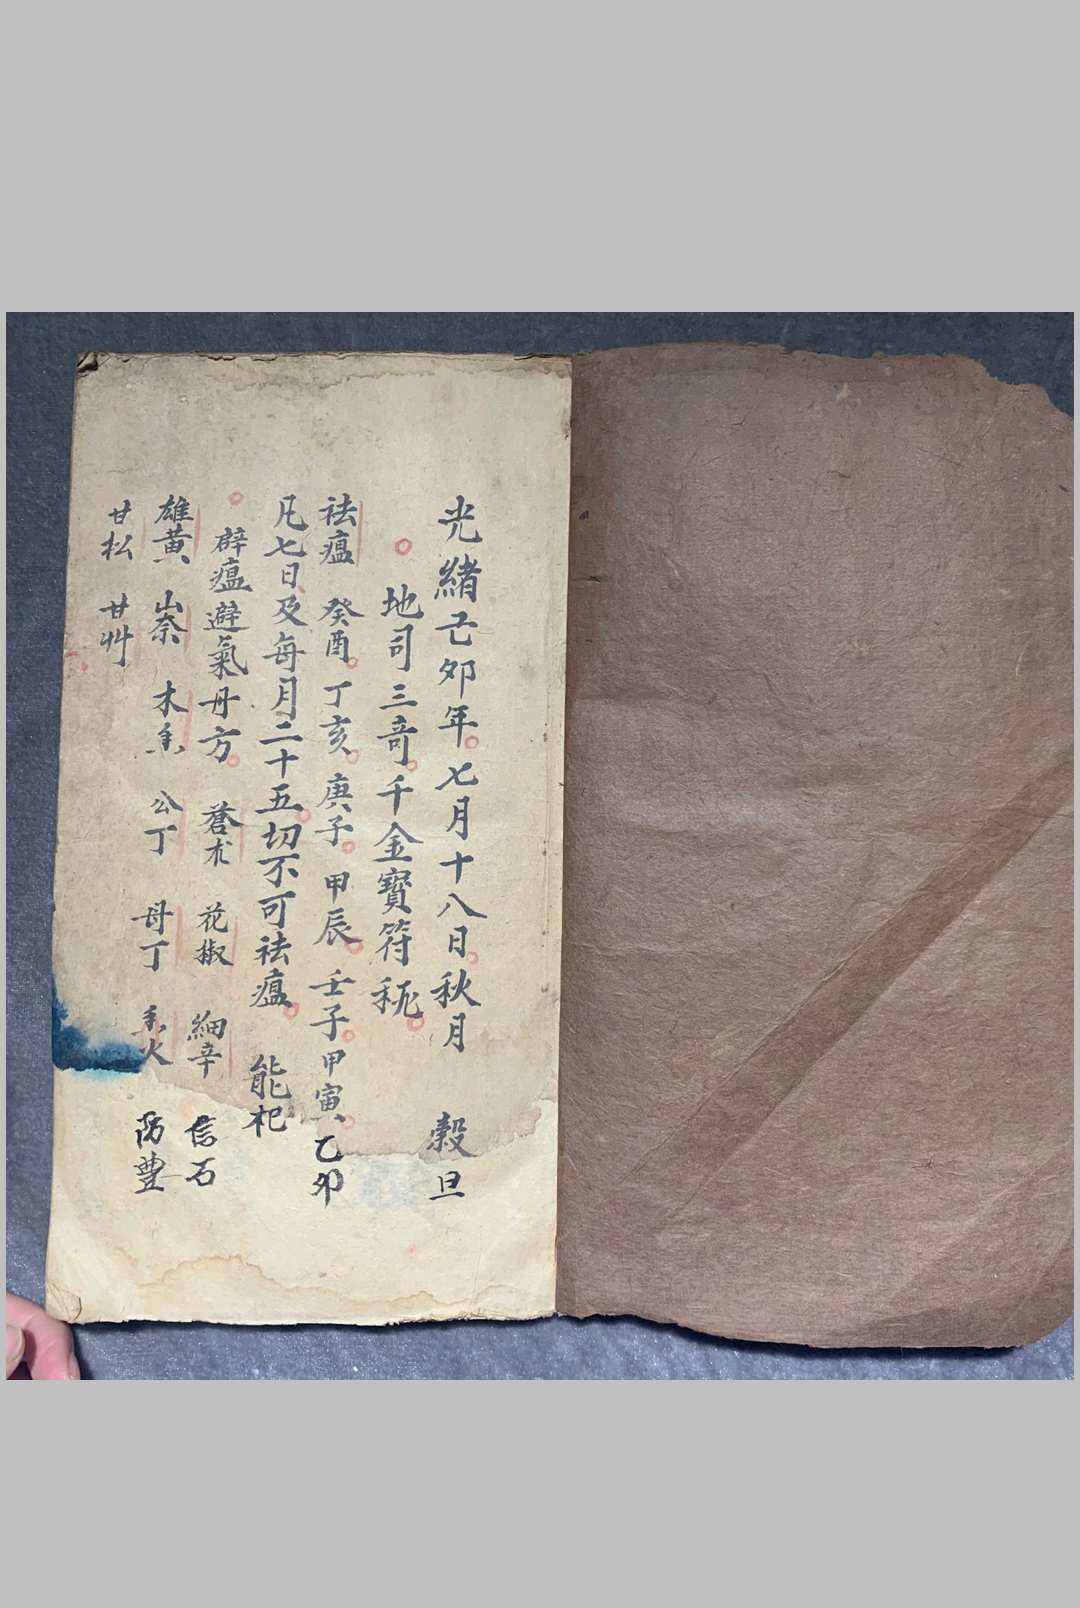 光緒乙夘年七月十八日秋月 榖旦
地司三竒千金寳符
祛瘟 癸酉 丁亥 庚子 甲辰 壬子 甲寅 乙夘
凡七日及每月二十五切不可祛瘟 能
辟瘟避氣丹方 蒼朮 花椒 細辛 信石
雄黃 木香 公丁 母丁 火 防豊
甘松 甘艸